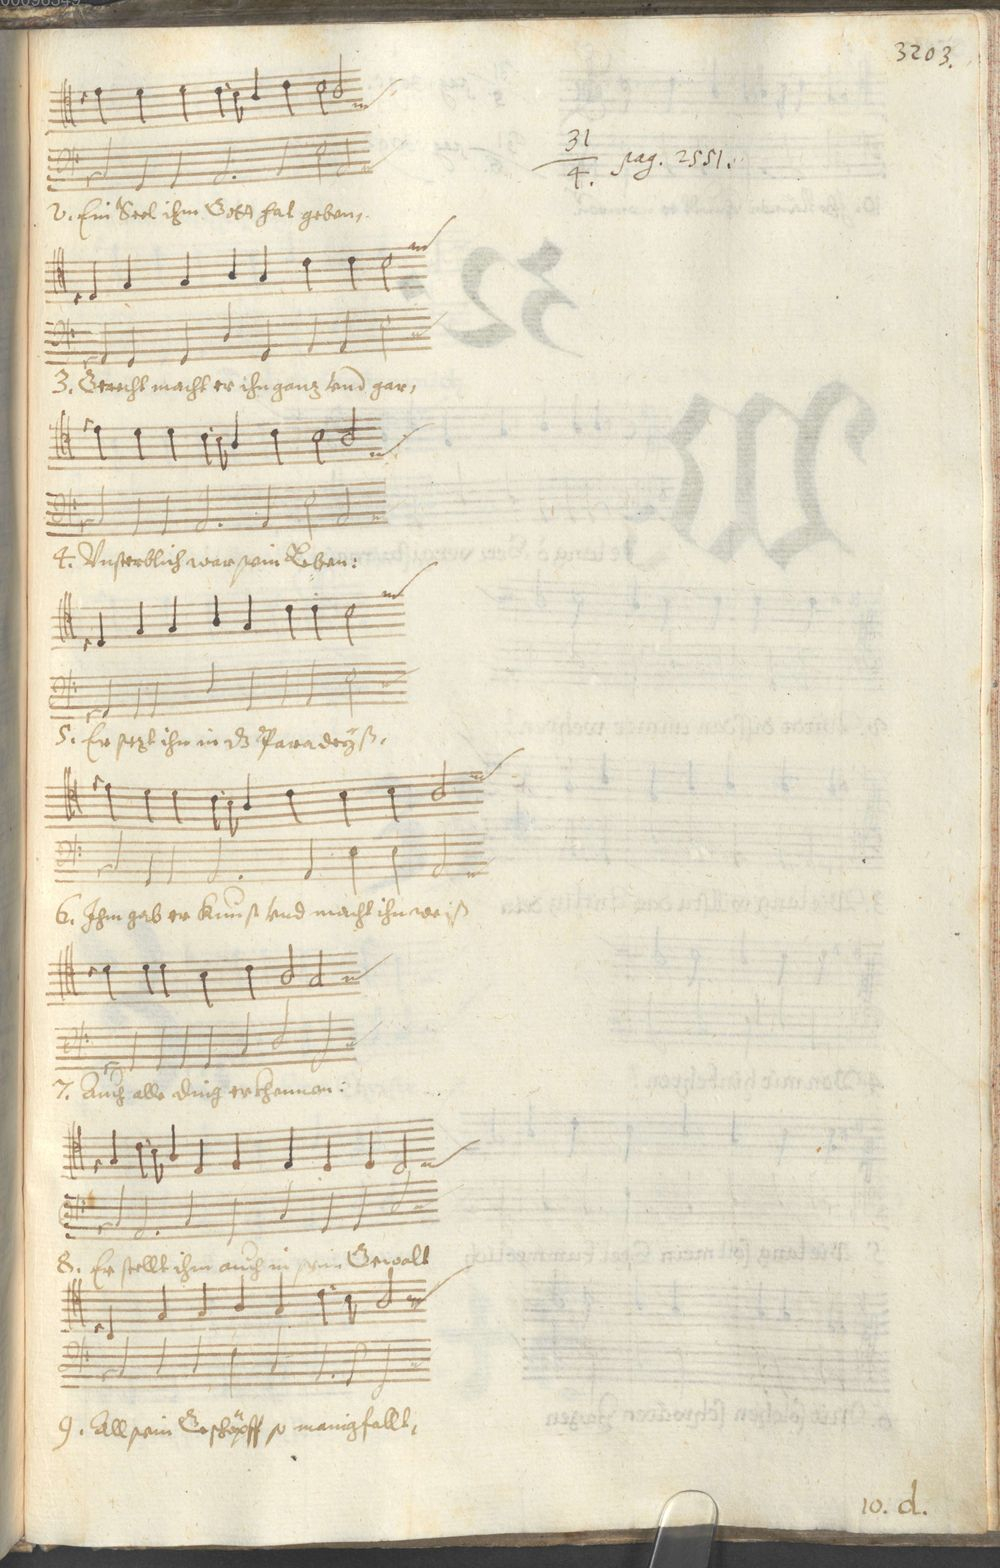 3203.
31
4. pag. 2551.
2. Ein Seel ihm Gott hat geben,
3. Gerecht macht er ihn ganz vnd gar,
4. Vnsterblich war sein Leben:
5. Er setzt ihn in dz Paradeyß,
6. Ihm gab er Kunst vnd macht ihn weiß
7. Auch alle ding erkhennen:
8. Er stellt ihm auch in sein Gewalt
9. All sein Geschöpff so manigfallt,
10. d.